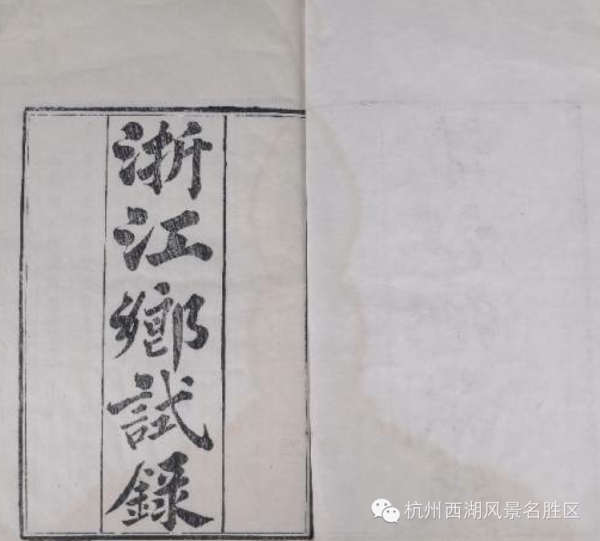 浙江鄉試錄
杭州西湖风景名胜区